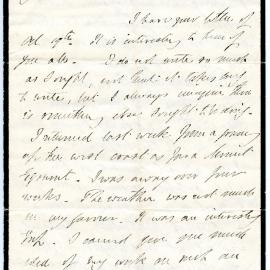 I have your letter of
Oct 19th. It is interesting to hear of
you also. I do not write as much
as I ought, not that it takes long
to write, but I always imagine there
is something else I ought to be doing.
I returned last week from a journey
up the west coast as far as Mount
Egmont. I was away over four
weeks. The weather was not much
in my favour. It was an interesting
trip. I cannot give you much
idea of my work on such an